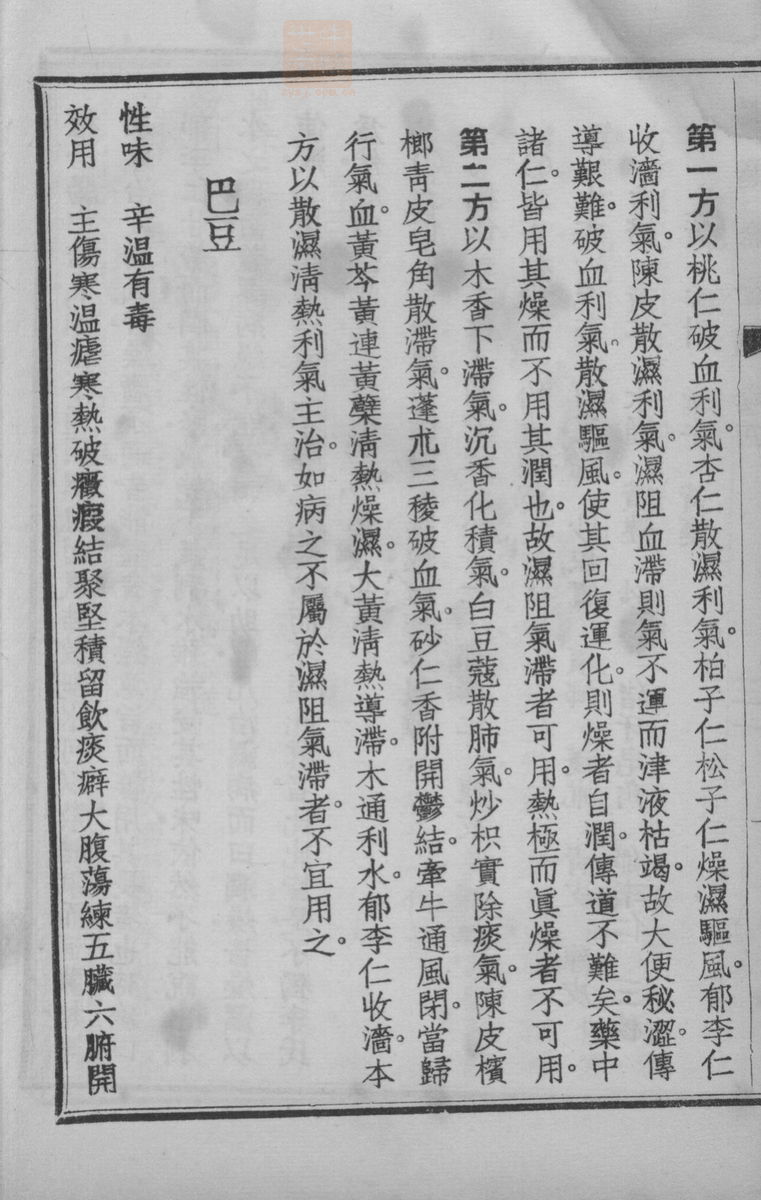 第一方以桃仁破血利氣。杏仁散濕利氣。柏子仁松子仁燥濕驅風。郁李仁
收濇利氣。陳皮散濕利氣。濕阻血滯則氣不運而津液枯竭。故大便秘澀。傳
導艱難。破血利氣。散濕驅風。使其回復運化。則燥者自潤。傳道不難矣。藥中
諸仁。皆用其燥而不用其潤也。故濕阻氣滯者可用。熱極而眞燥者不可用。
第二方以木香下滯氣。沉香化積氣。白豆蔻散肺氣。炒枳實除痰氣。陳皮檳
榔靑皮皂角散滯氣。蓬朮三稜破血氣。砂仁香附開鬱結。牽牛通風閉。當歸
行氣血。黃芩黃連黃蘗淸熱燥濕。大黃淸熱導滯。木通利水。郁李仁收濇。本
方以散濕淸熱利氣主治。如病之不屬於濕阻氣滯者。不宜用之。
巴豆
性味　辛溫有毒
效用　主傷寒溫瘧寒熱破癥瘕結聚堅積留飮痰癖大腹蕩練五臟六腑開